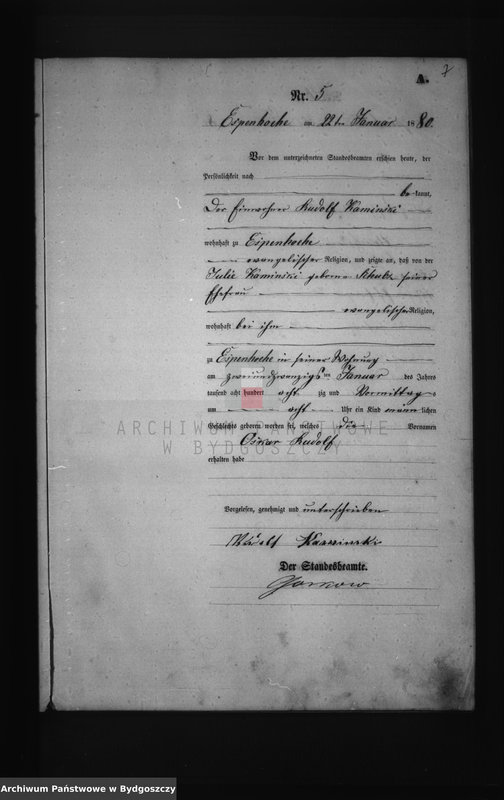 7
A.
Nr. 5
Espenhoehe am 22ten Januar 1880.
Vor dem unterzeichneten Standesbeamten erschien heute, der
Persönlichkeit nach
bekannt,
Der Einwohner Rudolf Kaminski
wohnhaft zu Espenhoehe
evangelischer Religion, und zeigte an, daß von der
Julie Kaminski geborne seiner
Ehefrau
evangelischer Religion,
wohnhaft bei ihm
zu Espenhoehe in seiner Wohnung
am zweiundzwanzigsten Januar des Jahres
tausend acht hundert achtzig und Vormittags
um acht Uhr ein Kind männlichen
Geschlechts geboren worden sei, welches die Vornamen
Oskar Rudolf
erhalten habe
Vorgelesen, genehmigt und unterschrieben
Rudolf Kaminski
Der Standesbeamte.
ARCHIWUM PAŃSTWOWE
W BYDGOSZCZY
Archiwum Państwowe w Bydgoszczy